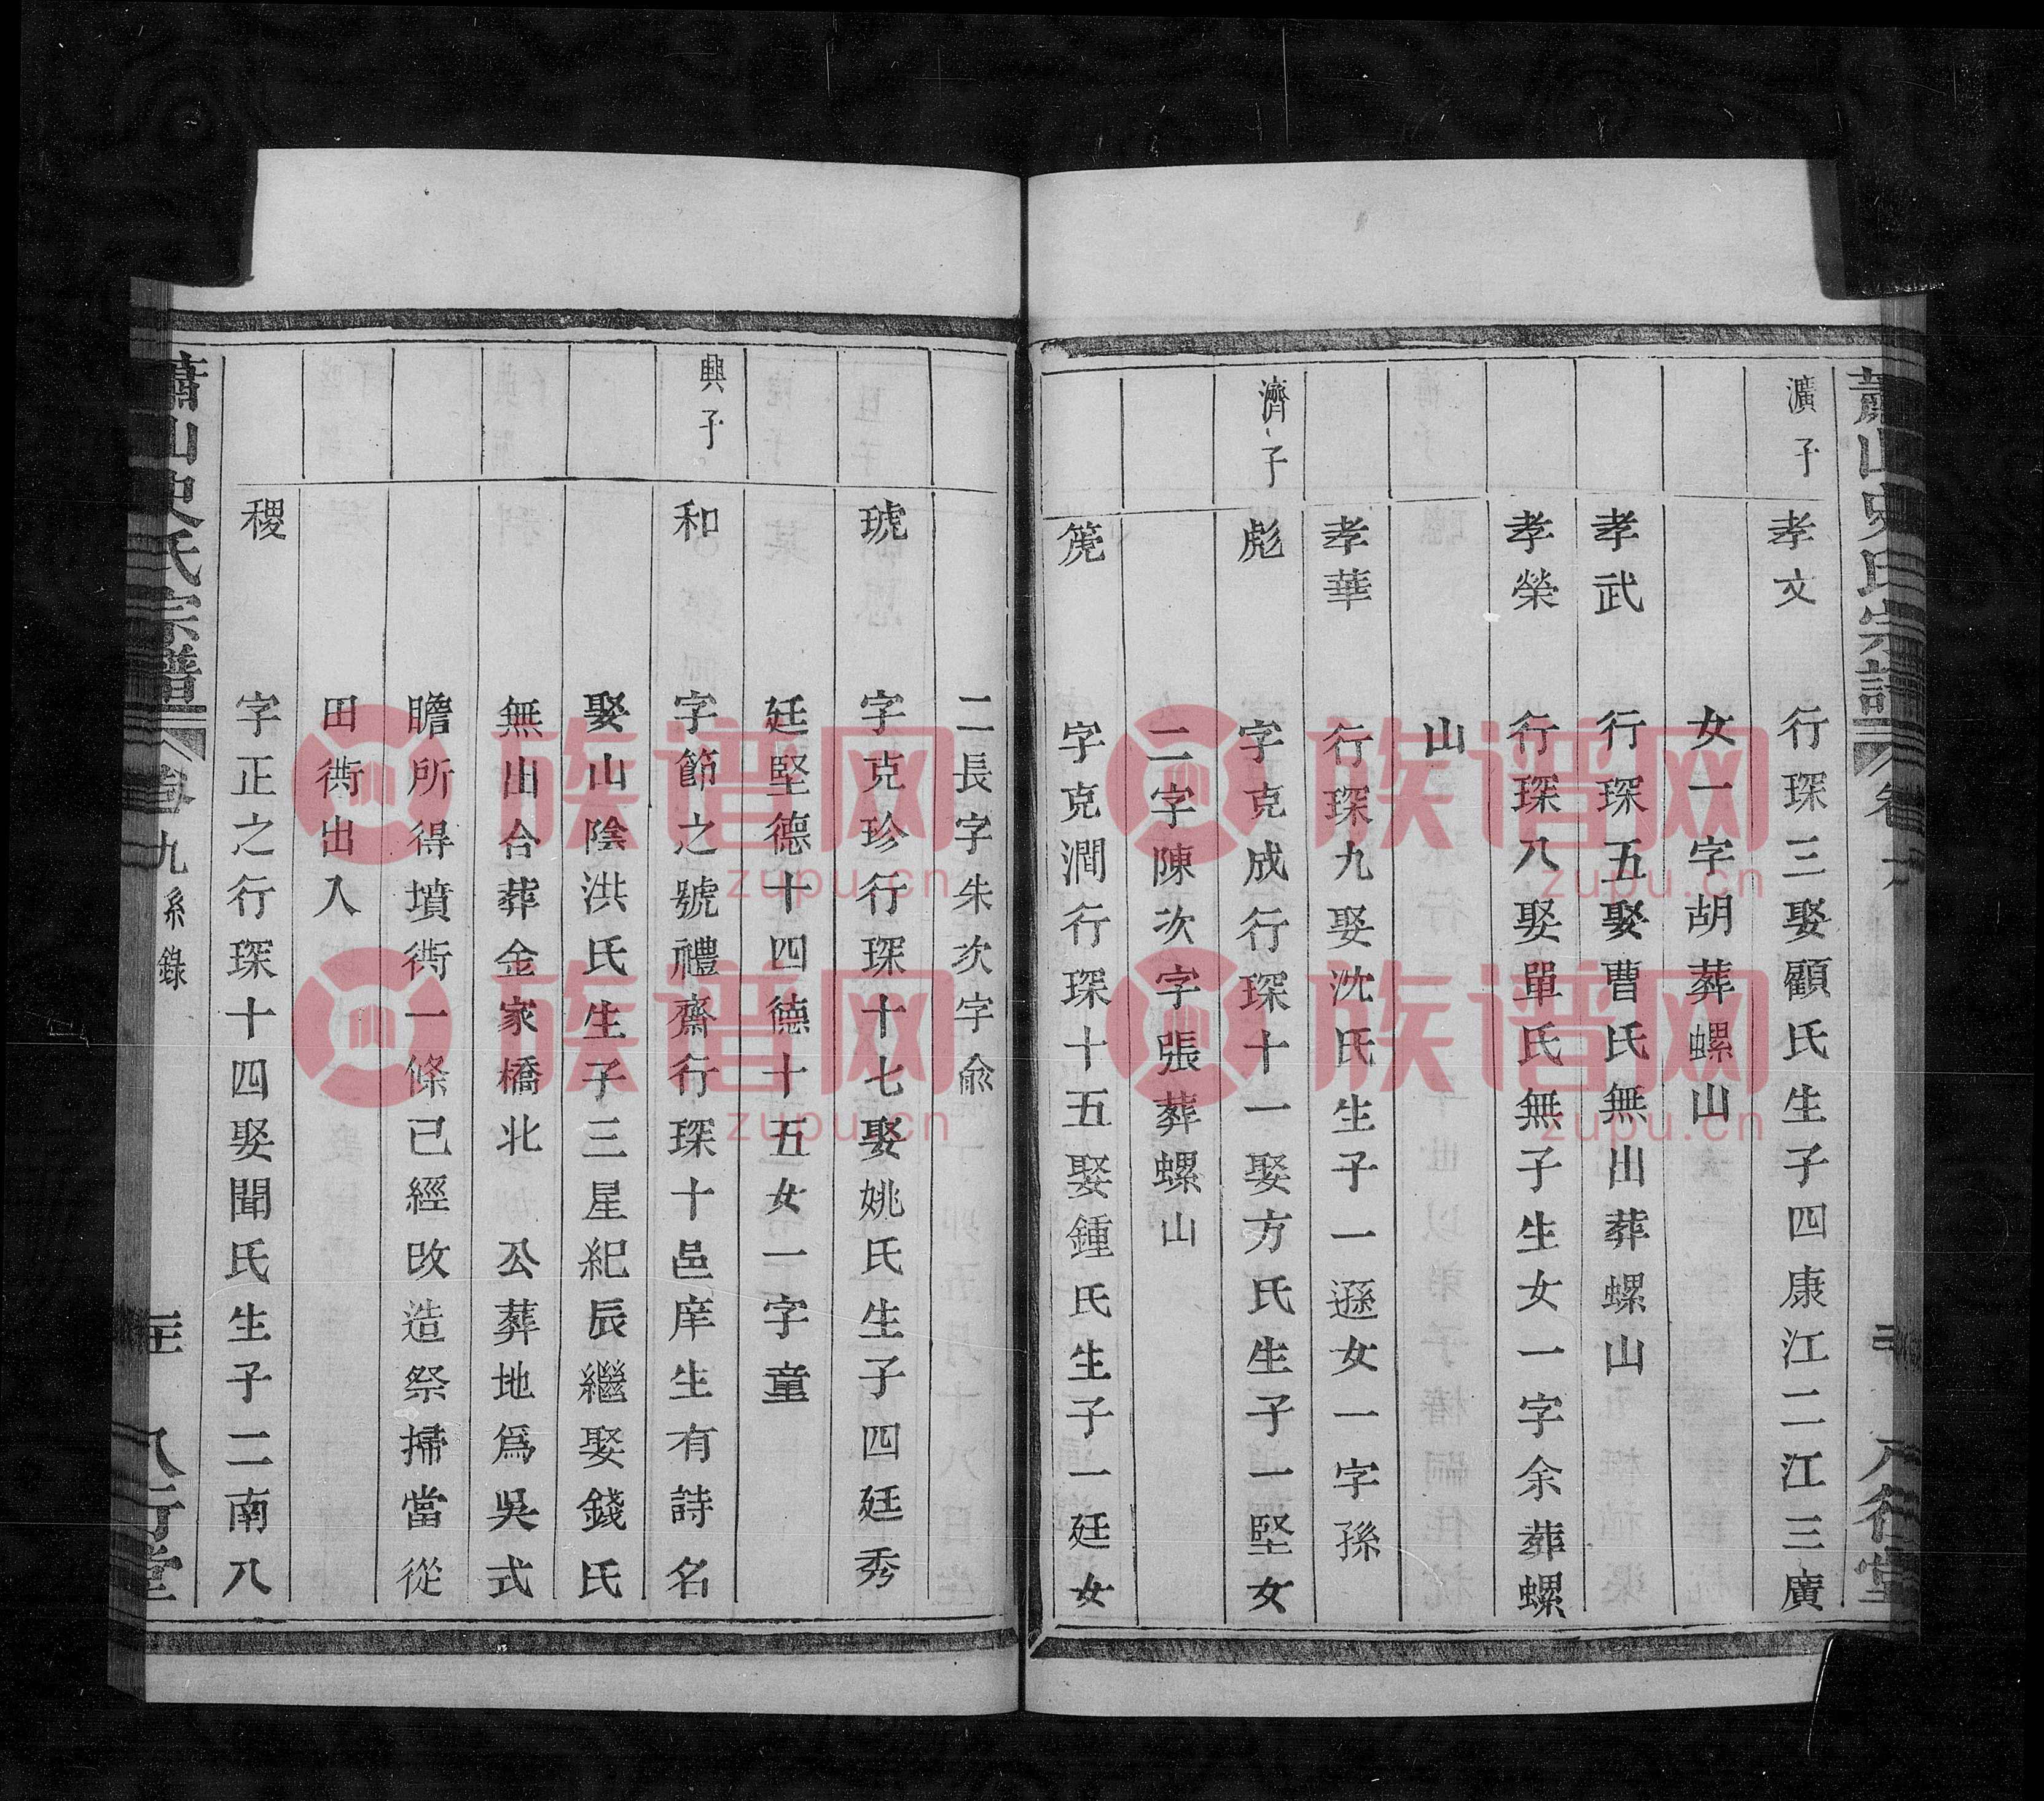 蕭山史氏宗譜
卷
八行堂
瀇子 孝文 行琛三娶顧氏生子四康江二江三廣
女一字胡葬螺山
孝武 行琛五娶曹氏無出葬螺山
孝榮 行琛八娶單氏無子生女一字余葬螺
山
孝華 行琛九娶沈氏生子一遜女一字孫
濟子 彪 字克成行琛十一娶方氏生子一堅女
二字陳次字張葬螺山
箎 字克潤行琛十五娶鍾氏生子一廷女
二長字朱次字兪
琥 字克珍行琛十七娶姚氏生子四廷秀
廷堅德十四德十五女一字童
興子 和 字節之號禮齋行琛十邑庠生有詩名
娶山陰洪氏生子三星紀辰繼娶錢氏
無出合葬金家橋北 公葬地爲吳式
瞻所得墳衖一條已經改造祭掃當從
田衖出入
稷 字正之行琛十四娶聞氏生子二南八
蕭山史氏宗譜
卷九系錄
八行堂
族谱网
zupu.cn
族谱网
zupu.cn
族谱网
zupu.cn
族谱网
zupu.cn